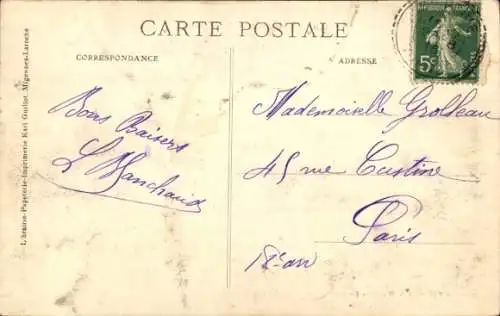 CARTE POSTALE
CORRESPONDANCE
ADRESSE
RÉPUBLIQUE FRANÇAISE
5c
Bons Baisers
L Blanchaud
Mademoiselle Grolleau
45 rue Custine
Paris
18e arr
Librairie-Papeterie-Imprimerie Karl Guillot, Migennes-Laroche